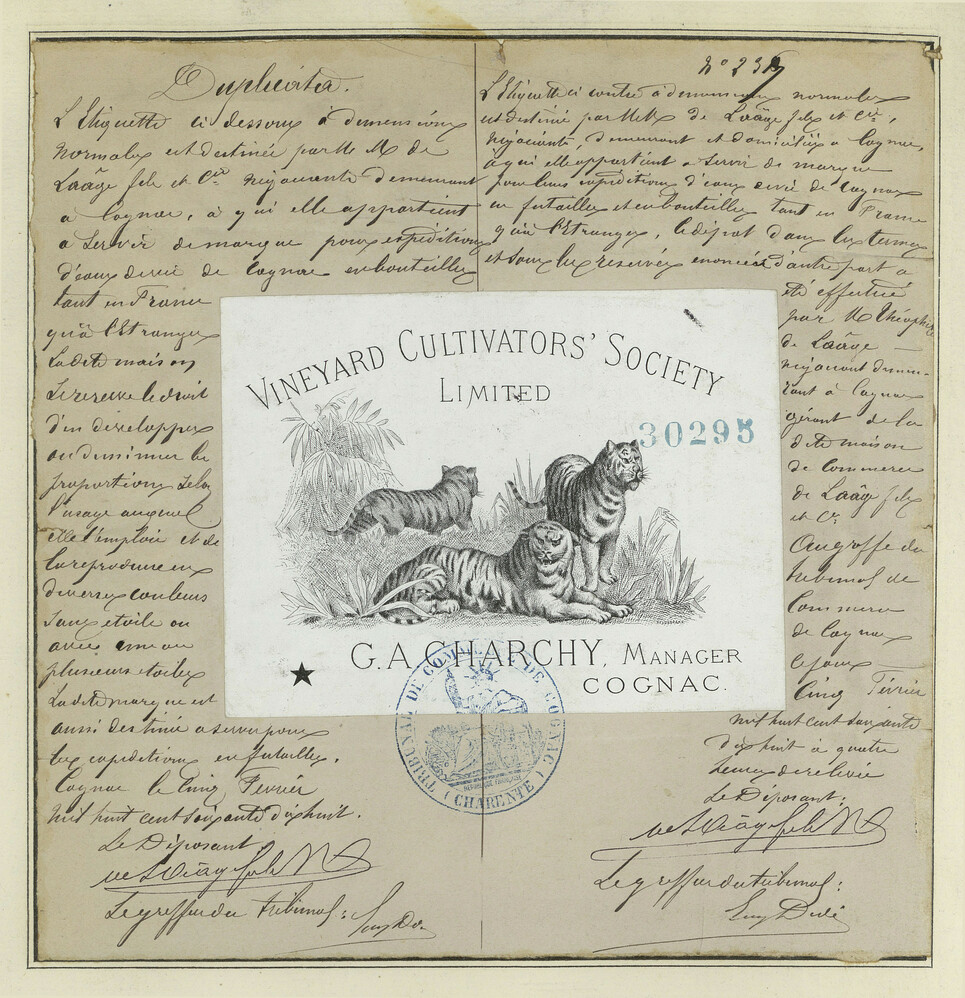 Duplicata.
L'Etiquette ci dessous à dimensions
normales est destinée par M M de
Laâge fils et Cie négociants demeurant
a Cognac, à qui elle appartient
a servir de marque pour expéditions
d'eaux de vie de Cognac en bouteilles
tant en France
qu'à l'Etranger
Ladite maison
se reserve le droit
d'en développer
ou diminuer les
proportions selon
l'usage auquel
elle l'emploie et de
la reproduire en
diverses couleurs
sans etoile ou
avec une ou
plusieurs etoiles
Ladite marque est
aussi destinée a servir pour
les expeditions en futailles.
Cognac le Cinq Février
mil huit cent soixante dix huit.
Le Déposant
de Laâge fils
Le greffier du tribunal:
N°
L'Etiquette ci contre à dimensions normales
est destinée par MM de Laâge fils et Cie,
négociants, demeurant et domiciliés a Cognac,
à qui elle appartient a servir de marque
pour leurs expéditions d'eaux de vie de Cognac
en futailles et en bouteilles tant en France
qu'à l'Etranger, le dépot dans les termes
et sous les reserves enoncées d'autre part a
été effectué
par M Théophile
de Laâge
négociant demeu-
rant à Cognac
gérant de la
dite maison
de Commerce
de Laâge fils
et Cie
Au greffe du
tribunal de
Commerce
de Cognac
le jour
Cinq Février
mil huit cent soixante
dix huit à quatre
heures de relevée
Le Déposant:
de Laâge fils
Le greffier du tribunal:
VINEYARD CULTIVATORS' SOCIETY
LIMITED
30295
G.A. CHARCHY, MANAGER
COGNAC.
TRIBUNAL DE COMMERCE DE COGNAC
REPUBLIQUE FRANÇAISE
(CHARENTE)